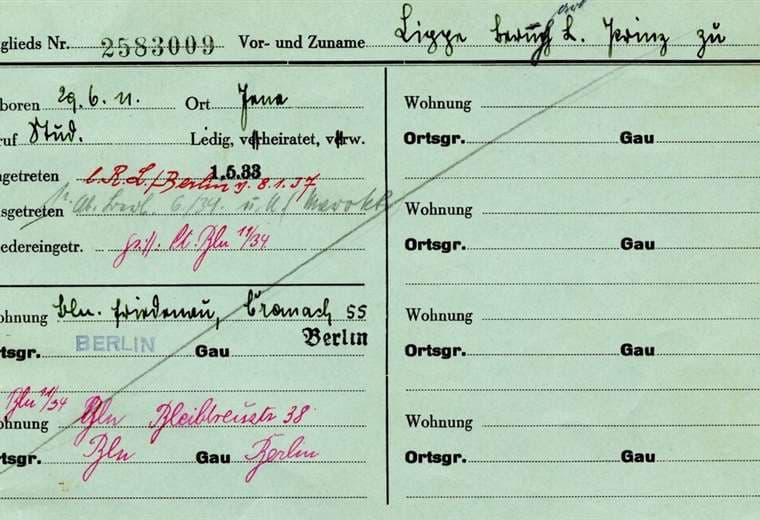 glieds Nr. 2583009 Vor- und Zuname Lippe L. Prinz zu
boren 29.6.11. Ort Jena
ruf Stud. Ledig, verheiratet, verw.
ngetreten 1.5.33
R.L./Berlin v. 8.1.37
sgetreten 6/34. u.
edereingetr. Bln 11/34
ohnung Bln. Friedenau, Cranach 55
rtsgr. BERLIN Gau Berlin
Bln 11/34
ohnung Bln Bleibtreustr 38
rtsgr. Bln Gau Berlin
Wohnung
Ortsgr. Gau
Wohnung
Ortsgr. Gau
Wohnung
Ortsgr. Gau
Wohnung
Ortsgr. Gau